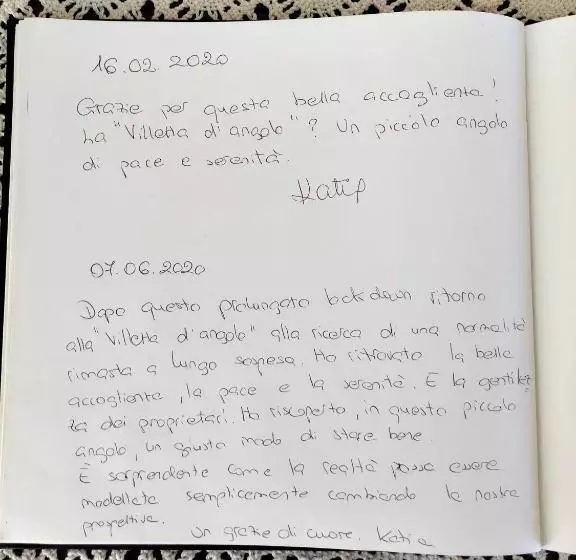 16.02.2020
Grazie per questa bella accogliente!
La "Villetta d'angolo"? Un piccolo angolo
di pace e serenità.
Katia
07.06.2020
Dopo questo prolungato lockdown ritorno
alla "Villetta d'angolo" alla ricerca di una normalità
rimasta a lungo sospesa. Ho ritrovato la bella
accogliente, la pace e la serenità. E la gentilez
za dei proprietari. Ho riscoperto, in questo piccolo
angolo, un giusto modo di stare bene.
È sorprendente come la realtà possa essere
modellata semplicemente cambiando la nostra
prospettiva.
Un grazie di cuore. Katia